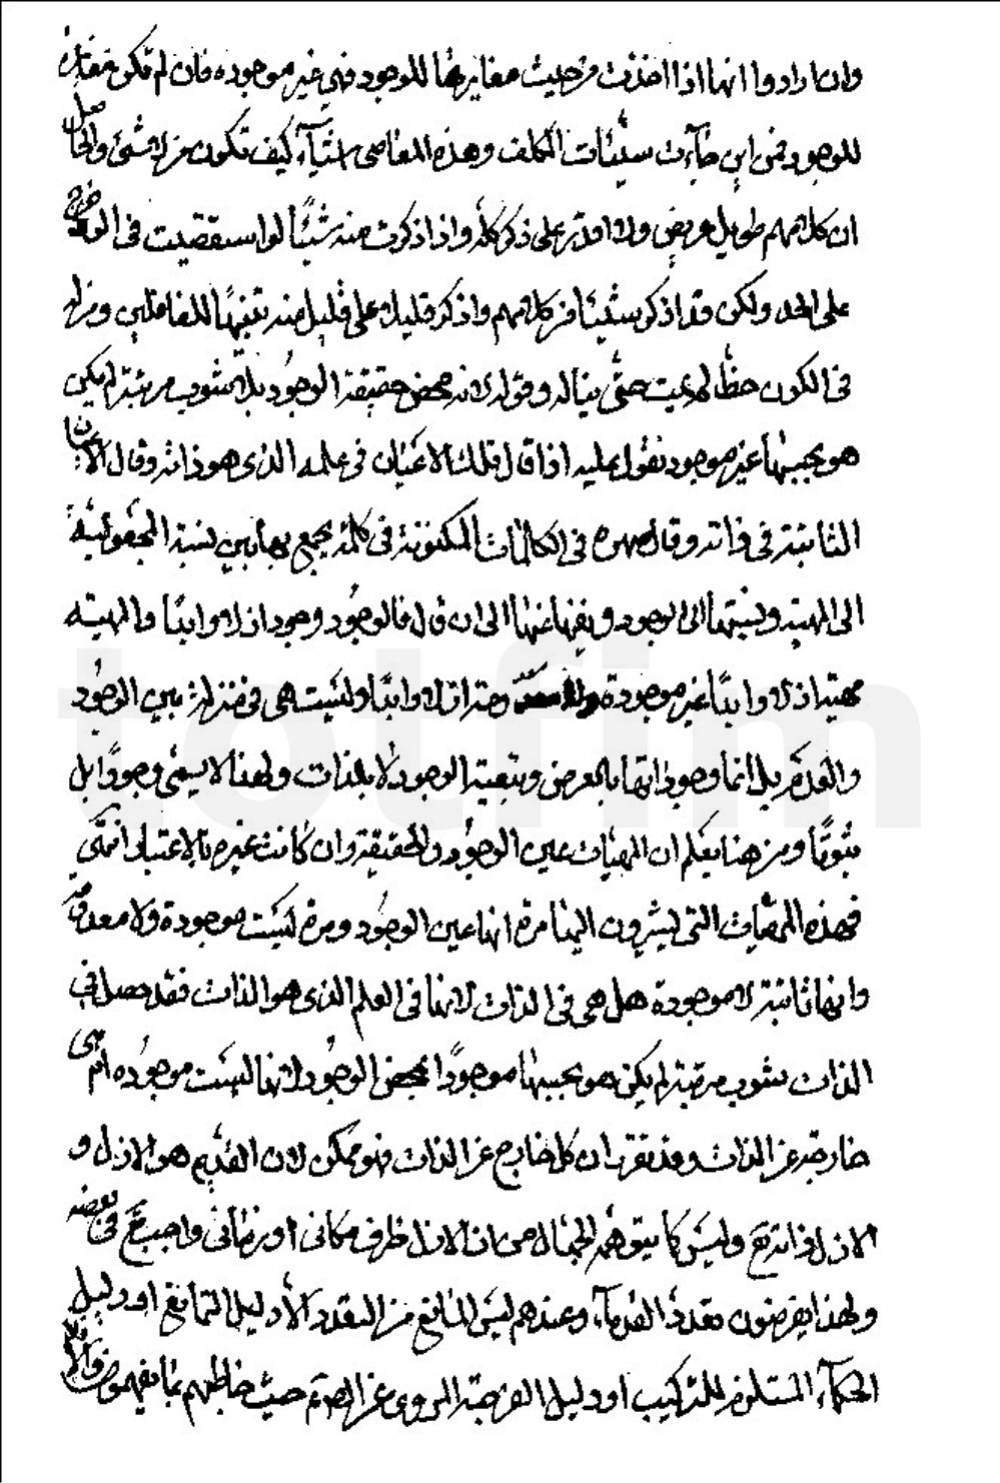 وان ارادوا انها اذا اخذت من حيث مغايرتها للوجود فهي غير موجوده فان لم تكن مغايرة
للوجود فمن اين جاءت سيئات المكلف وهذه المعاصي اشياء كيف تكون من لا شئ والحاصل
ان كلامهم طويل عريض ولا اقدر على ذكر كله واذا ذكرت منه شيئا لو استقصيت في الرد خرج
على الحد ولكن قد اذكر شيئا من كلامهم واذكر قليلا على قليل منه تنبيها للغافلين ومن له
في الكون حظ لم يمت حتى يناله وقوله لانه محض حقيقة الوجود بلا شوب مرتبة لم يكن
هو بحسبها غير موجود نقول عليه اذا قال قلت الاعيان في علمه الذي هو ذاته وقال الاعيان
الثابتة في ذاته وقال صهره في الكلمات المكنونة في كلمة يجمع بها بين نسبة المجعولية
الى المهية ونسبتها الى الوجود ونفيها عنها الى ان قال فالوجود وجود ازلا وابدا والمهية
مهية ازلا وابدا غير موجودة ولا معدومة ازلا وابدا وليست هي في منزلة بين الوجود
والعدم بل انما وجوداتها بالعرض وبتبعية الوجود لا بالذات ولهذا لا يسمى وجودا بل
ثبوتا ومن هنا يعلم ان المهيات عين الوجود والحقيقة وان كانت غيره بالاعتبار انتهى
فهذه المهيات التي يشيرون اليها مرة انها عين الوجود ومرة ليست موجودة ولا معدومة
وانها ثابتة لا موجودة هل هي في الذات لانها في العلم الذي هو الذات فقد حصل في
الذات شوب مرتبة لم يكن هو بحسبها موجودا لمحض الوجود لانها ليست موجوده ام هي
خارجة عن الذات وقد تقرر ان كل خارج عن الذات فهو ممكن لان القديم هو الازل و
الازل ذاته تع وليس كما يتوهمه الجهال من ان الازل ظرف مكاني او زماني واجب تع في بعضه
ولهذا يفرضون تعدد القدماء وعندهم ليس المانع من التعدد الا دليل التمانع او دليل
الحكماء المستلزم للتركيب او دليل الفرجة المروي عن الصادق حيث خاطبهم بما يفهمون والا